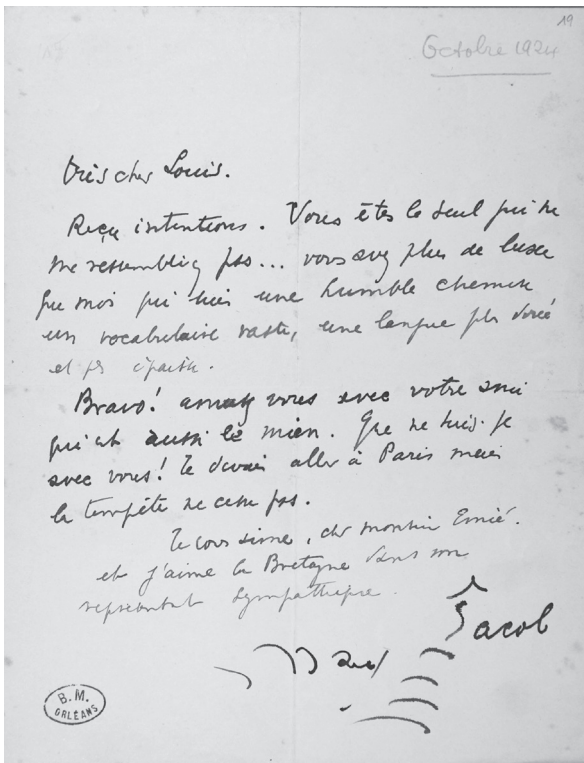 19
Octobre 1924
Très cher Louis.
Reçu intentions. Vous êtes le seul qui ne
me ressembliez pas... vous avez plus de luxe
que moi qui suis une humble chemise
un vocabulaire vaste, une langue plus dorée
et plus épaisse.
Bravo! amusez vous avec votre ami
qui est aussi le mien. Que ne suis-je
avec vous! Je devais aller à Paris mais
la tempête ne cesse pas.
Je vous aime, cher monsieur Emié.
et j'aime la Bretagne dans son
représentant sympathique.
Max Jacob
B. M.
ORLÉANS